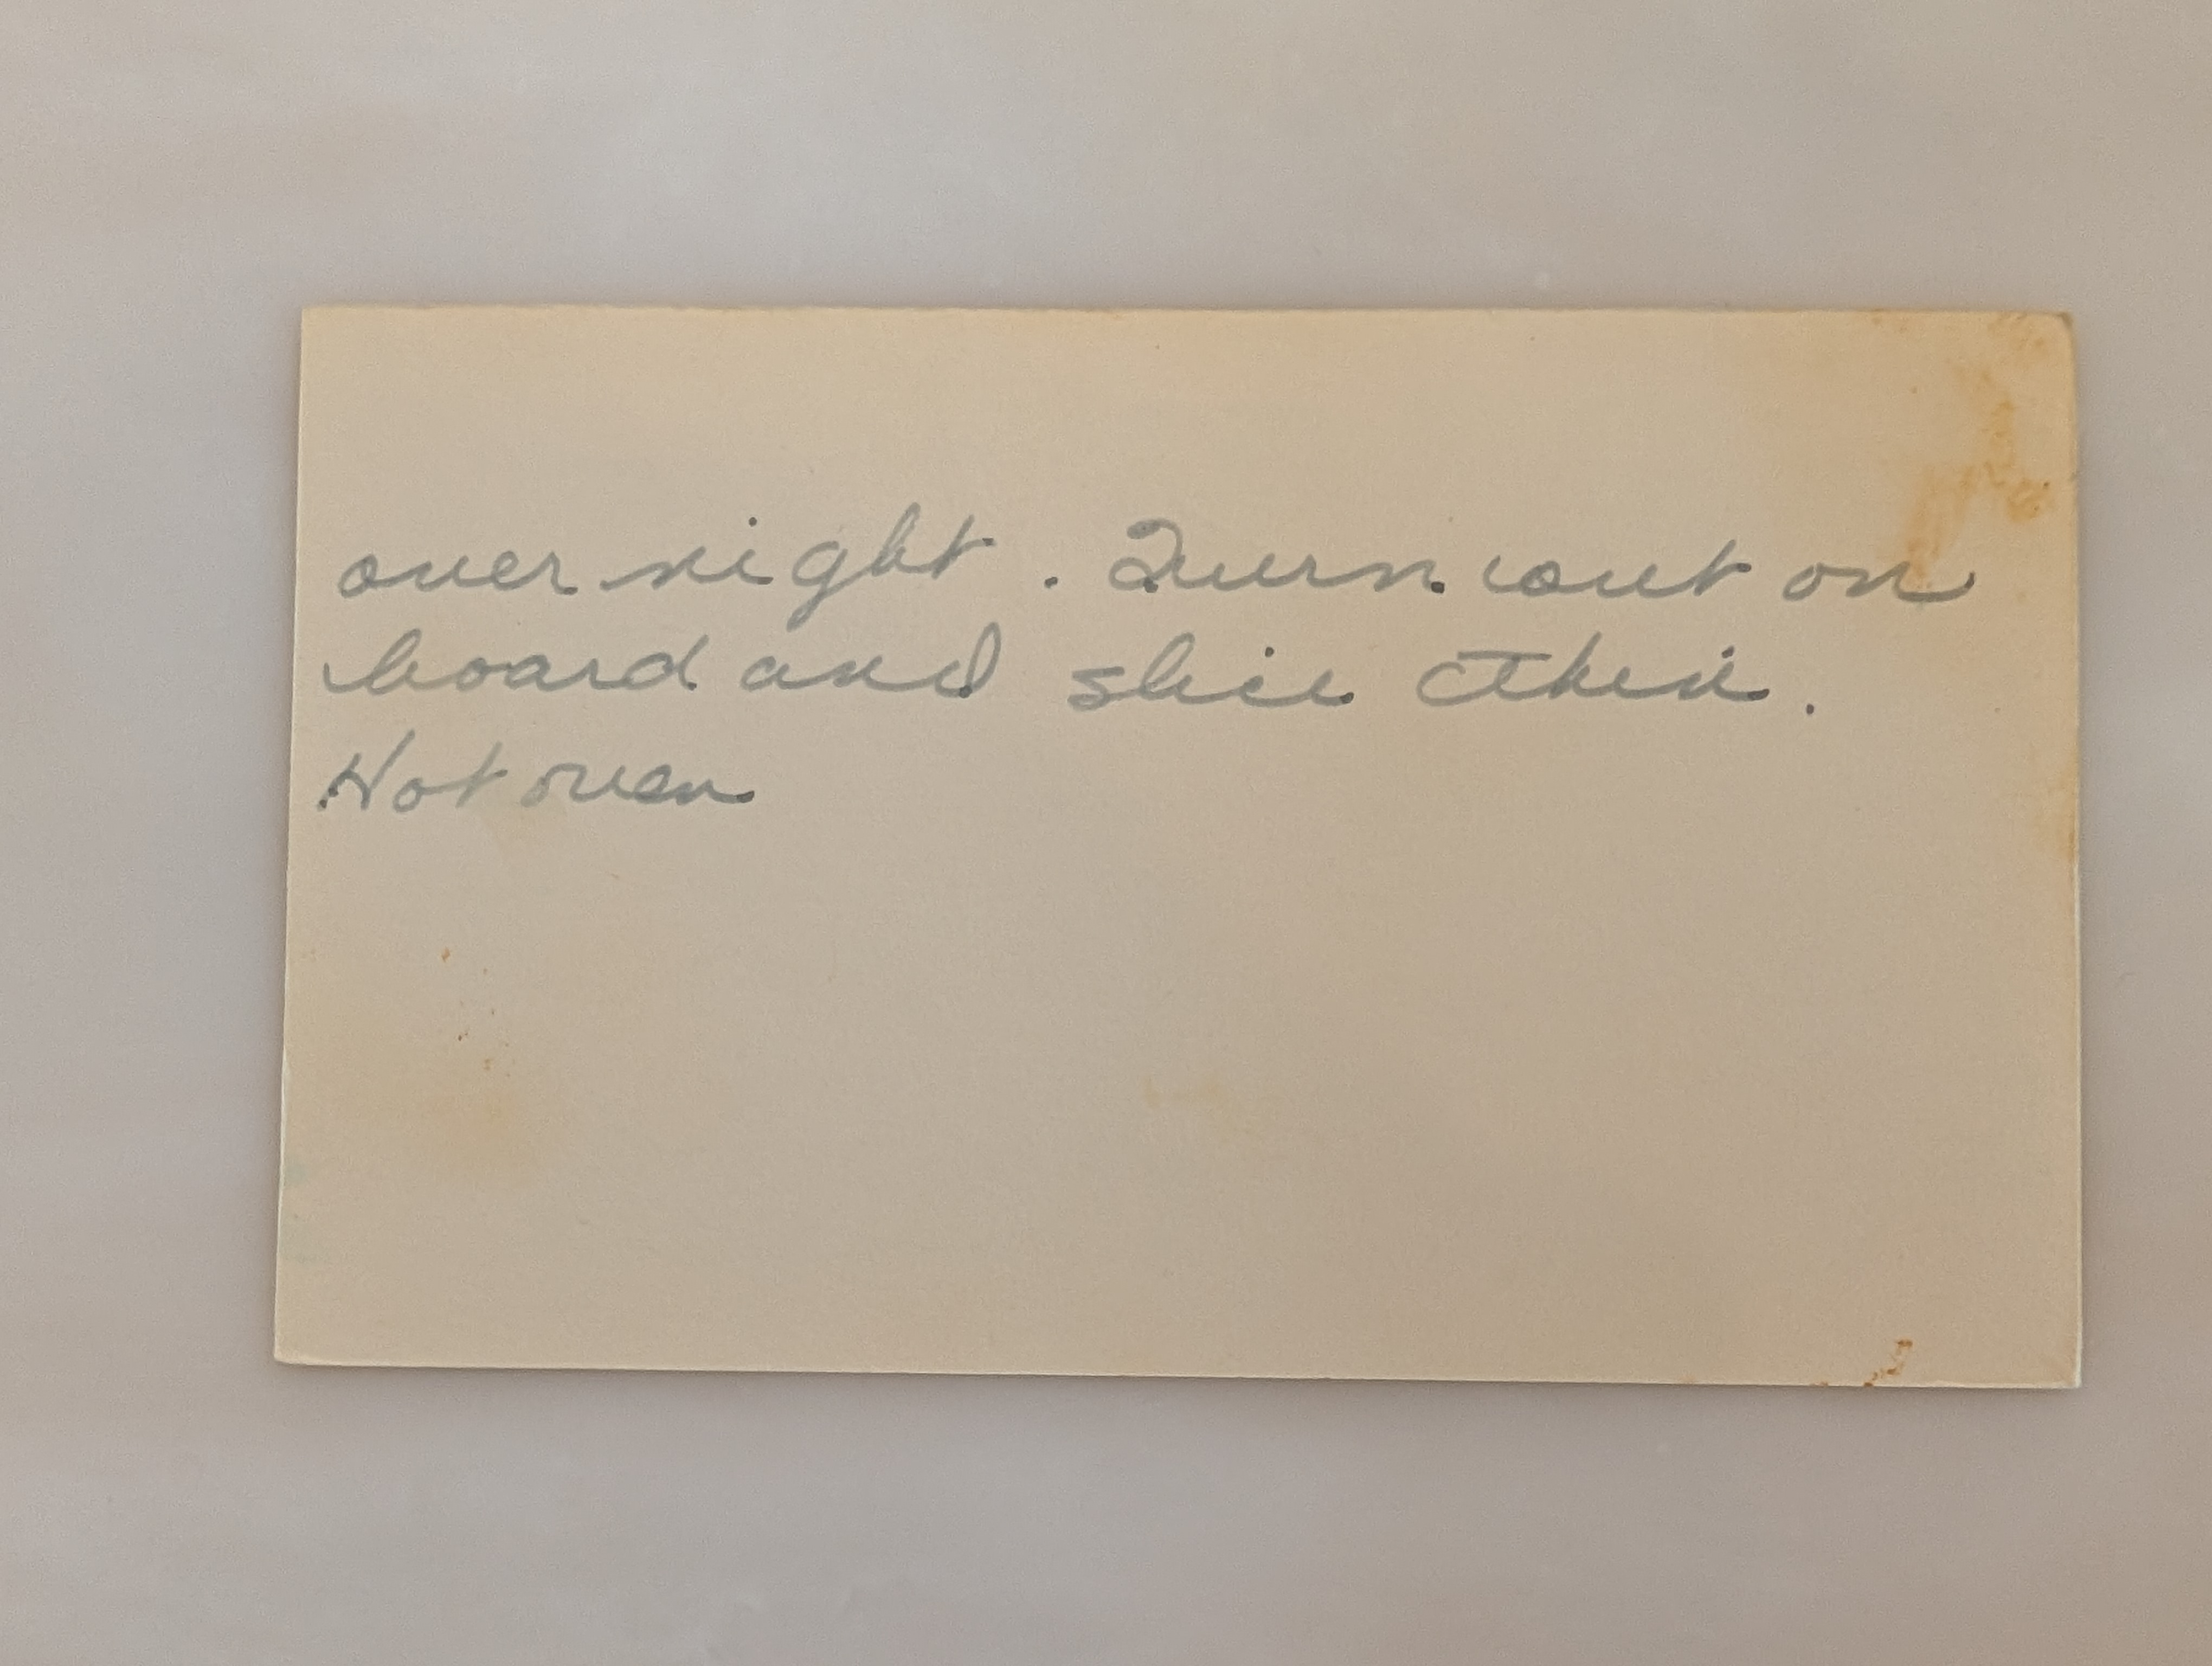 over night. Turn out on
board and slice thin.
Hot oven